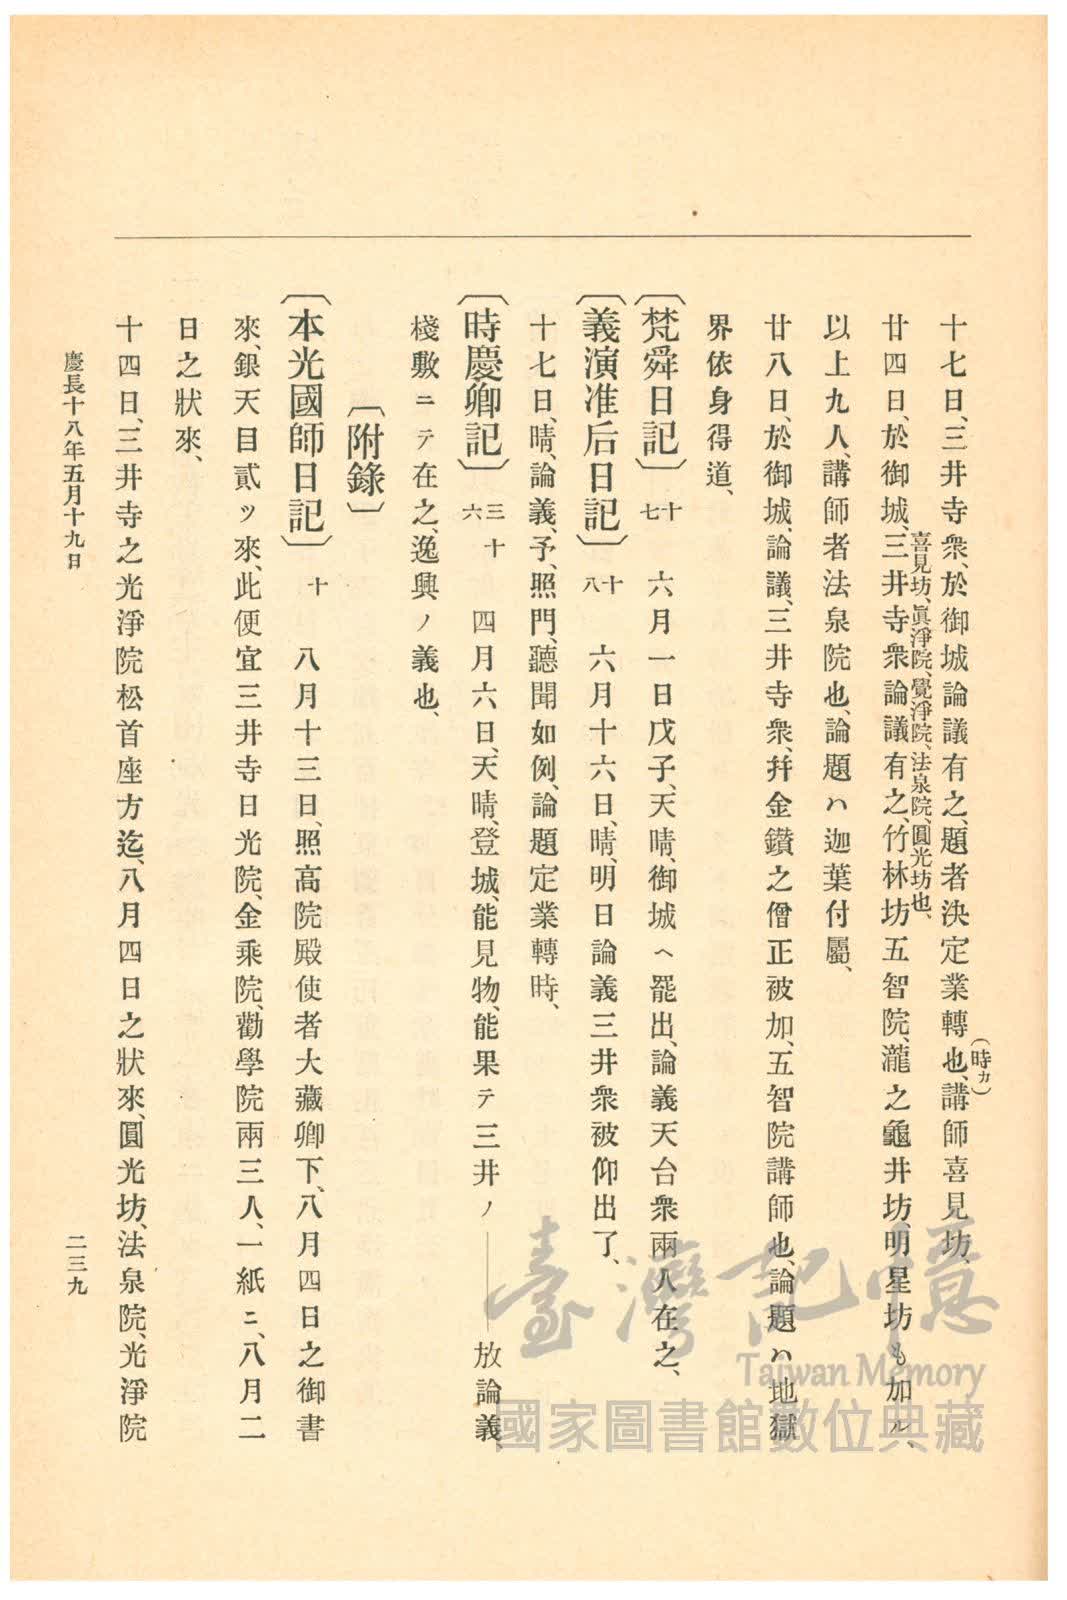 十七日、三井寺衆、於御城論議有之、題者決定業轉(時カ)也、講師喜見坊、
喜見坊、眞淨院、覺淨院、法泉院、圓光坊也、
廿四日、於御城、三井寺衆論議有之、竹林坊五智院、瀧之龜井坊、明星坊も加ル、
以上九人、講師者法泉院也、論題ハ迦葉付屬、
廿八日、於御城、論議、三井寺衆、幷金鑚之僧正被加、五智院講師也、論題ハ地獄
界依身得道、
〔梵舜日記〕十七 六月一日戊子、天晴、御城ヘ罷出、論義天台衆兩人在之、
〔義演准后日記〕十八 六月十六日、晴、明日論義三井衆被仰出了、
十七日、晴、論義、予、照門、聽聞如例、論題定業轉時、
〔時慶卿記〕三十六 四月六日、天晴、登城、能見物、能果テ三井ノ——放論義、
棧敷ニテ在之、逸興ノ義也、
〔附錄〕
〔本光國師日記〕十 八月十三日、照高院殿使者大藏卿下、八月四日之御書
來、銀天目貳ツ來、此便宜三井寺日光院、金乘院、勸學院兩三人、一紙ニ、八月二
日之狀來、
十四日、三井寺之光淨院松首座方迄、八月四日之狀來、圓光坊、法泉院、光淨院
慶長十八年五月十九日
二三九
臺灣記憶
Taiwan Memory
國家圖書館數位典藏